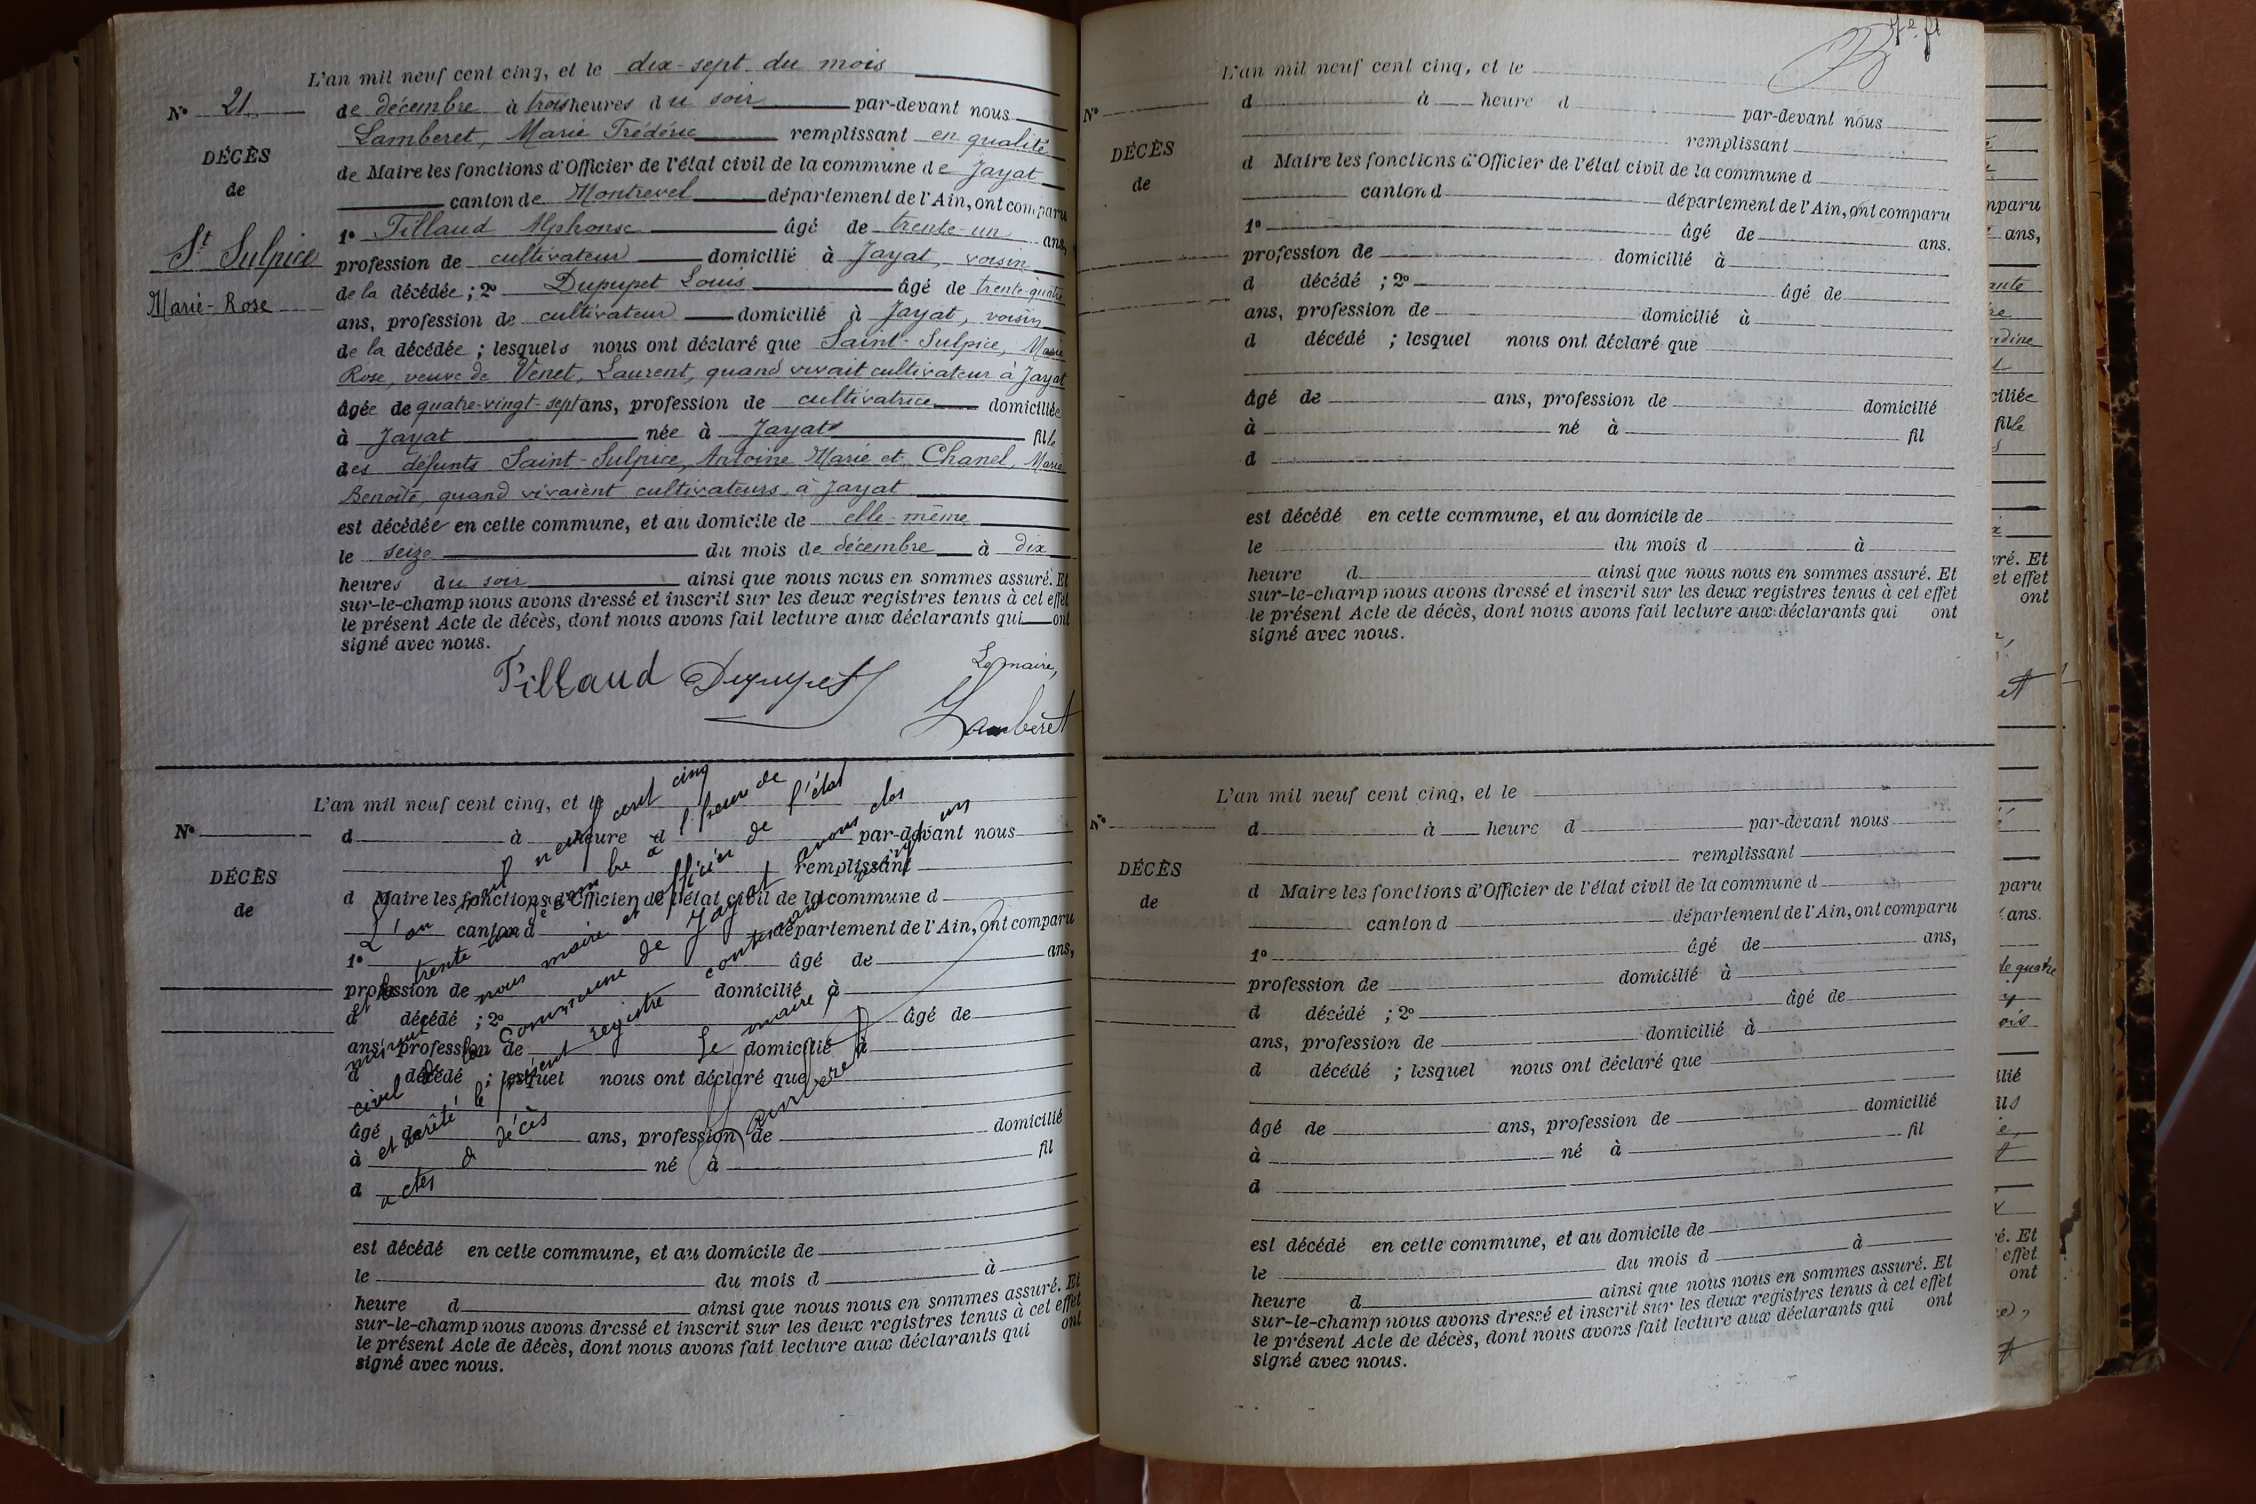 L'an mil neuf cent cinq, et le dix-sept du mois
N° 21
de décembre à trois heures du soir par-devant nous
Lamberet, Marie Frédéric remplissant en qualité
DÉCÈS
de
de Maire les fonctions d'Officier de l'état civil de la commune de Jayat
canton de Montrevel département de l'Ain, ont comparu
1° Tillaud Alphonse âgé de trente-un ans,
St Sulpice
Marie-Rose
profession de cultivateur domicilié à Jayat, voisin
de la décédée ; 2° Dupupet Louis âgé de trente-quatre
ans, profession de cultivateur domicilié à Jayat, voisin
de la décédée ; lesquels nous ont déclaré que Saint-Sulpice, Marie
Rose, veuve de Venet, Laurent, quand vivait cultivateur à Jayat
âgée de quatre-vingt-sept ans, profession de cultivatrice domiciliée
à Jayat née à Jayat fille
des défunts Saint-Sulpice, Antoine Marie et Chanel, Marie
Benoîte, quand vivaient cultivateurs à Jayat
est décédée en cette commune, et au domicile de elle-même
le seize du mois de décembre à dix
heures du soir ainsi que nous nous en sommes assuré. Et
sur-le-champ nous avons dressé et inscrit sur les deux registres tenus à cet effet
le présent Acte de décès, dont nous avons fait lecture aux déclarants qui ont
signé avec nous.
Tillaud Dupupet
Le maire,
Lamberet
L'an mil neuf cent cinq, et le
N°
d à heure d par-devant nous
remplissant
DÉCÈS
de
d Maire les fonctions d'Officier de l'état civil de la commune d
canton d département de l'Ain, ont comparu
1° âgé de ans,
profession de domicilié à
d décédé ; 2° âgé de
ans, profession de domicilié à
d décédé ; lesquel nous ont déclaré que
âgé de ans, profession de domicilié
à né à fil
d
est décédé en cette commune, et au domicile de
le du mois d à
heure d ainsi que nous nous en sommes assuré. Et
sur-le-champ nous avons dressé et inscrit sur les deux registres tenus à cet effet
le présent Acte de décès, dont nous avons fait lecture aux déclarants qui ont
signé avec nous.
L'an mil neuf cent cinq
et le trente-un décembre à l'heure de
minuit nous maire et officier de l'état
civil de la Commune de Jayat avons clos
et arrêté le présent registre contenant vingt un
actes de décès
Le maire
Lamberet
L'an mil neuf cent cinq, et le
N°
d à heure d par-devant nous
remplissant
DÉCÈS
de
d Maire les fonctions d'Officier de l'état civil de la commune d
canton d département de l'Ain, ont comparu
1° âgé de ans.
profession de domicilié à
d décédé ; 2° âgé de
ans, profession de domicilié à
d décédé ; lesquel nous ont déclaré que
âgé de ans, profession de domicilié
à né à fil
d
est décédé en cette commune, et au domicile de
le du mois d à
heure d ainsi que nous nous en sommes assuré. Et
sur-le-champ nous avons dressé et inscrit sur les deux registres tenus à cet effet
le présent Acte de décès, dont nous avons fait lecture aux déclarants qui ont
signé avec nous.
L'an mil neuf cent cinq, et le
N°
d à heure d par-devant nous
remplissant
DÉCÈS
de
d Maire les fonctions d'Officier de l'état civil de la commune d
canton d département de l'Ain, ont comparu
1° âgé de ans,
profession de domicilié à
d décédé ; 2° âgé de
ans, profession de domicilié à
d décédé ; lesquel nous ont déclaré que
âgé de ans, profession de domicilié
à né à fil
d
est décédé en cette commune, et au domicile de
le du mois d à
heure d ainsi que nous nous en sommes assuré. Et
sur-le-champ nous avons dressé et inscrit sur les deux registres tenus à cet effet
le présent Acte de décès, dont nous avons fait lecture aux déclarants qui ont
signé avec nous.